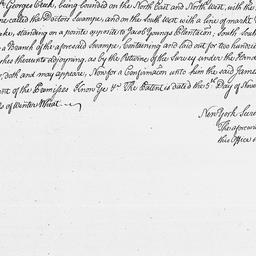 St Georges Creek, being bounded on the North East and North West, with the
me called the Doctors Swampe, and on the South West with a line of markt
ke, standing on a pointe opposite to Jacob Youngs Plantacon, South South
a Branch of the aforesaid Swampe, Containing and laid out for two hundred
ches thereunto adjoyning, as by the Returne of the Survey under the Hand
, doth and may appeare, Now for a Confirmacon unto him the said James
nt of the Premisses Know Ye &c. The Patent is dated the 5th Day of Nove
ls of Winter Wheat.
New York Sur
The aforewr
this Office